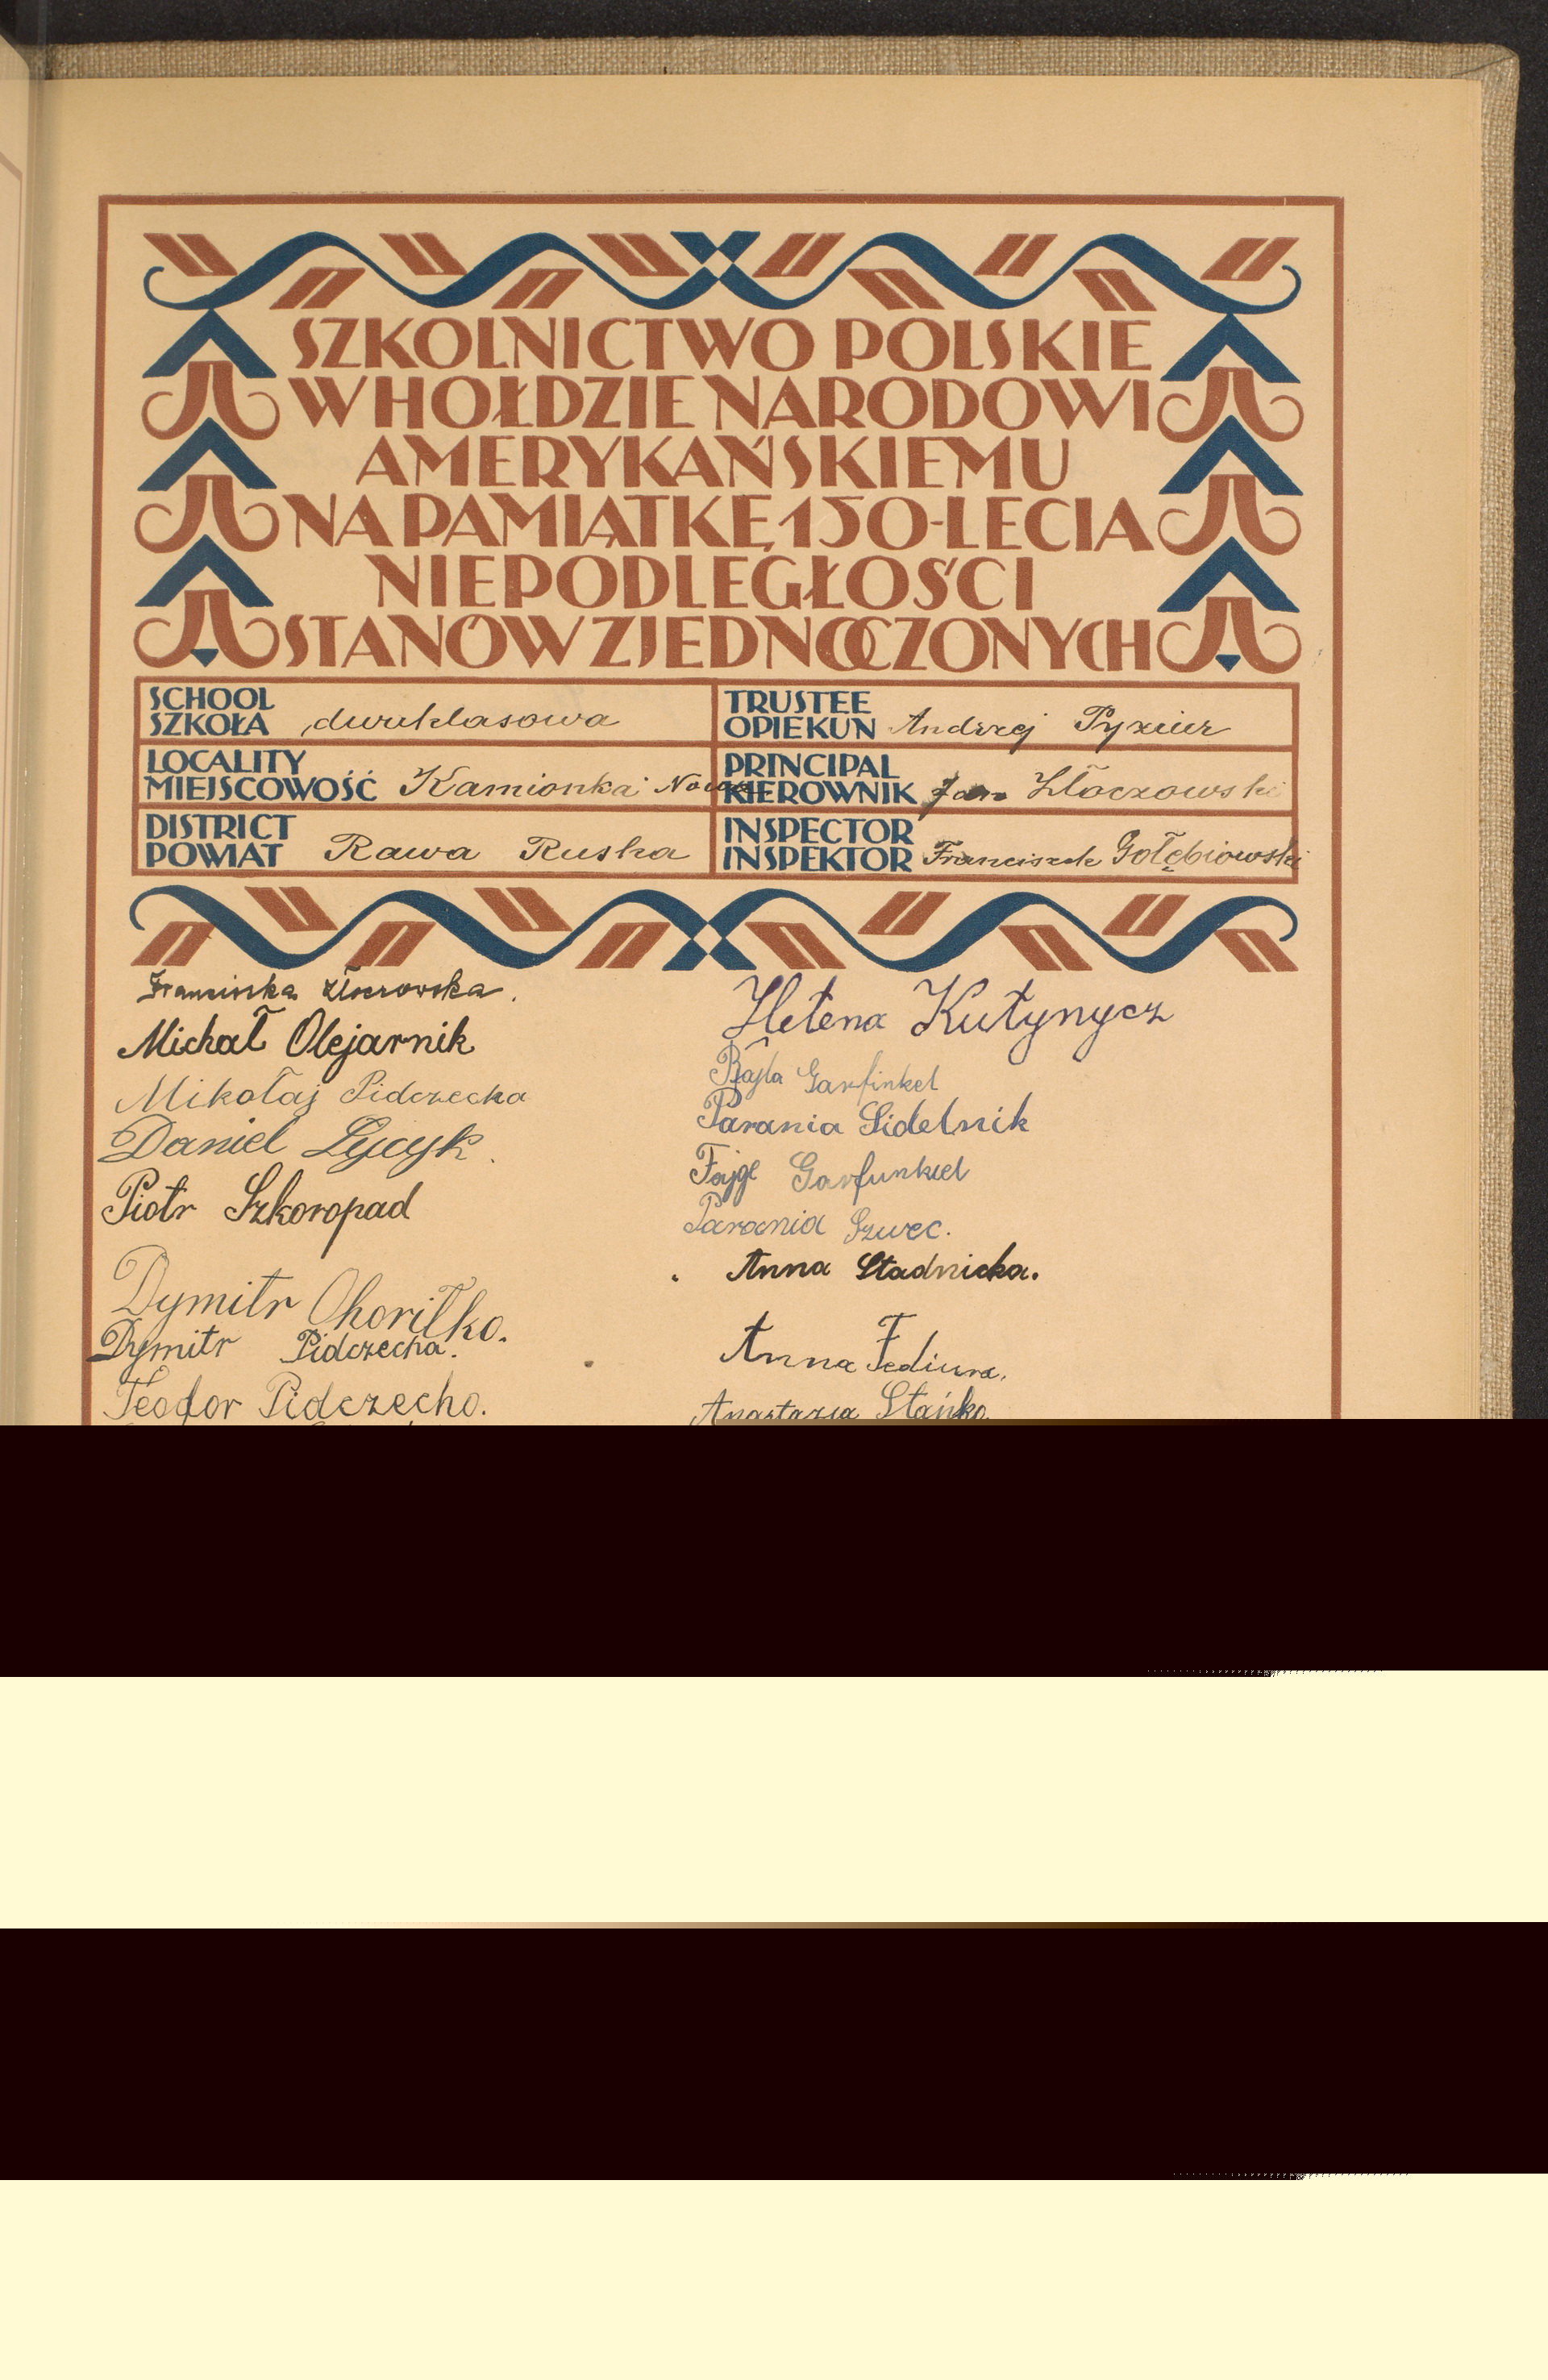 SZKOLNICTWO POLSKIE
W HOŁDZIE NARODOWI
AMERYKAŃSKIEMU
NA PAMIĄTKĘ 150-LECIA
NIEPODLEGŁOŚCI
STANÓW ZJEDNOCZONYCH
SCHOOL
SZKOŁA dwuklasowa
TRUSTEE
OPIEKUN Andrzej
LOCALITY
MIEJSCOWOŚĆ Kamionka Nowa
PRINCIPAL
KIEROWNIK Jan Kłoczowski
DISTRICT
POWIAT Rawa Ruska
INSPECTOR
INSPEKTOR Franciszek Gołębiowski
Franciszka
Michał Olejarnik
Mikołaj Pidczecha
Daniel
Piotr Szkoropad
Dymitr Ohoriłko.
Dymitr Pidczecha.
Teodor Pidczecho.
Helena Kutynycz
Rajla Garfinkel
Parania Sidelnik
Fajge Garfunkiel
Parania Szwec.
Anna Stadnicka.
Anna Fediura.
Anastazja Stańko